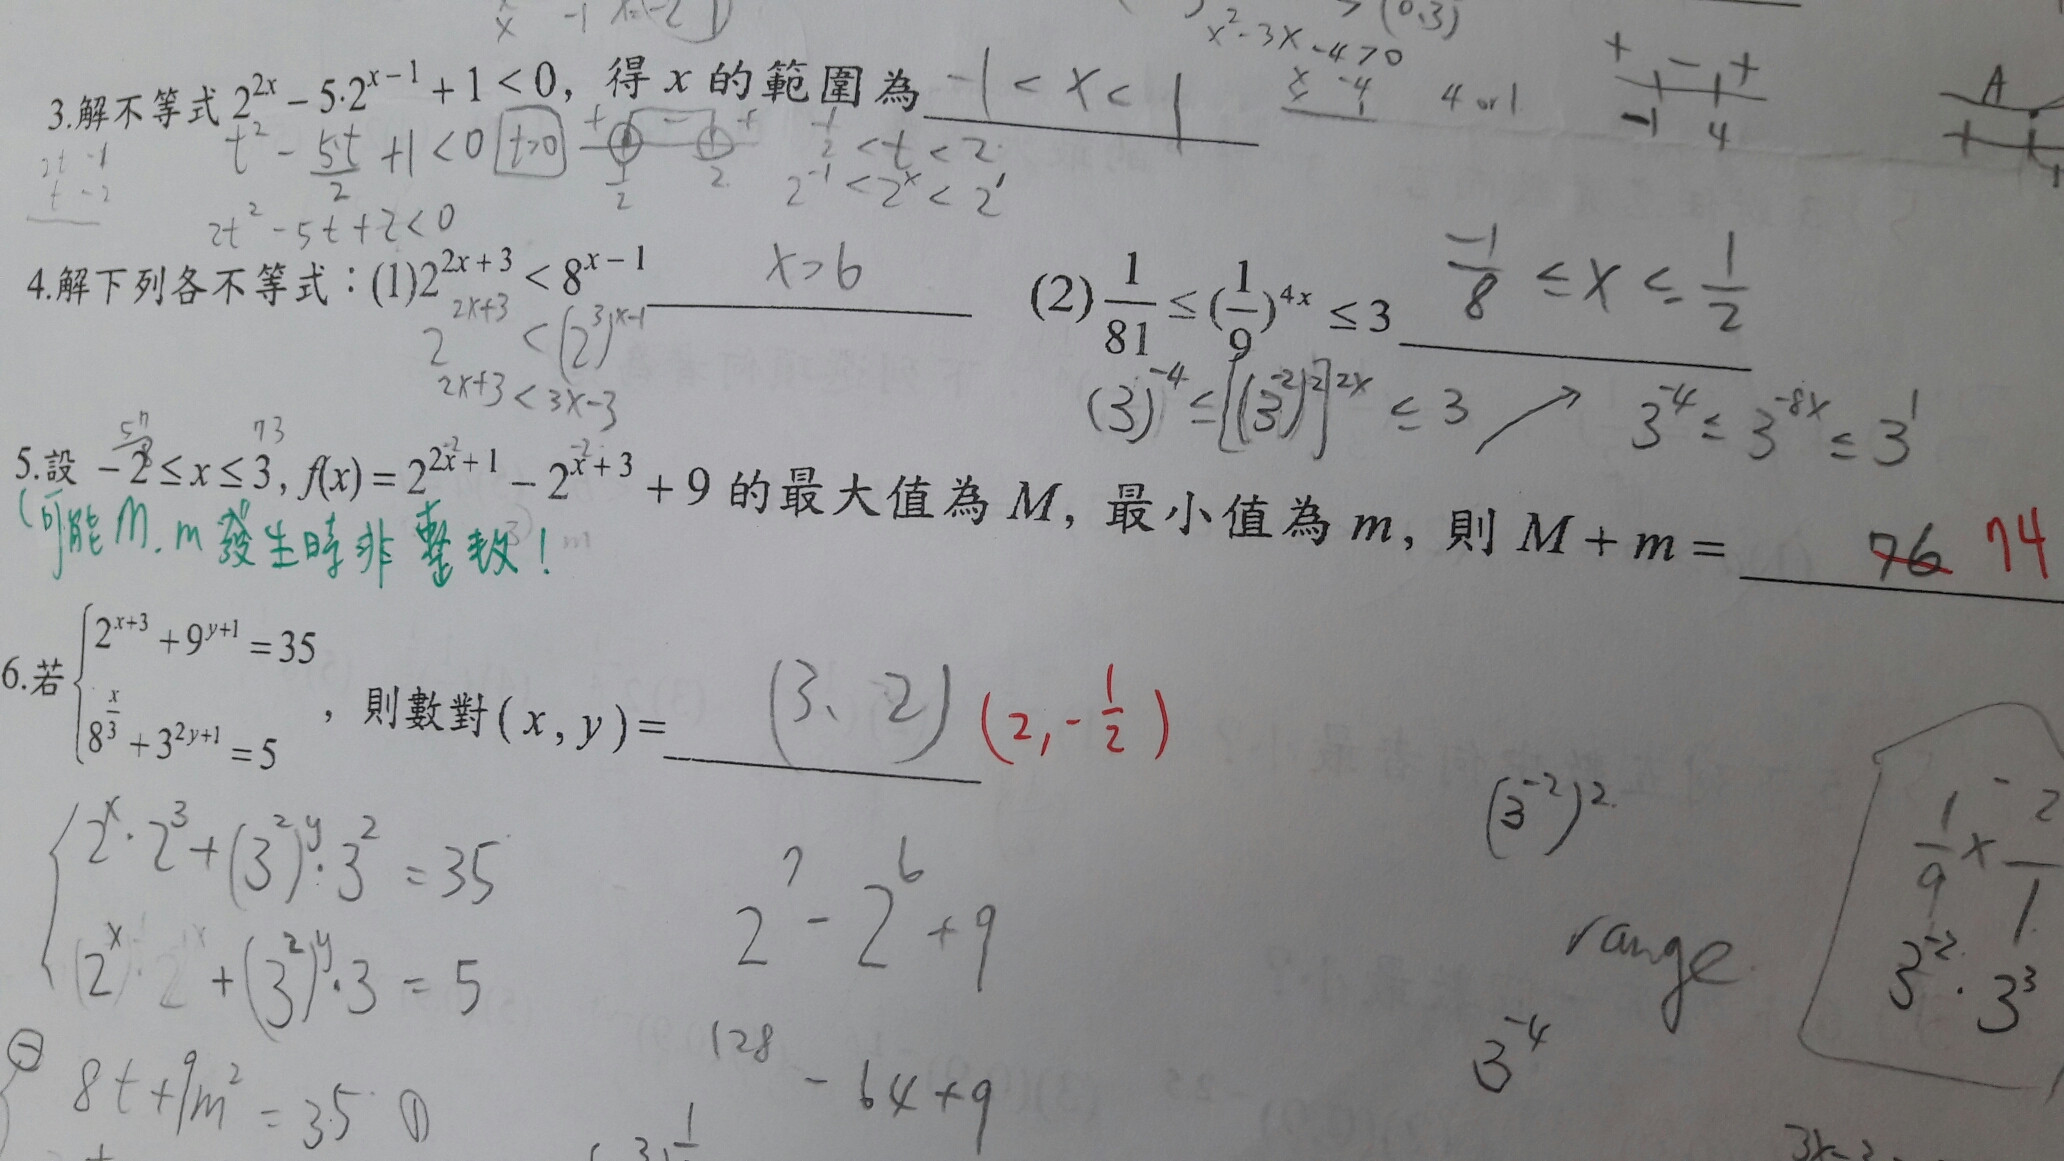 x²-3x-4>0
x -4
4 or 1
+ - +
-1 4
A
3.解不等式 2^{2x} - 5·2^{x-1} + 1 < 0, 得 x 的範圍為 -1 < x < 1
2t -1
t -2
t² - 5t/2 + 1 < 0 t>0
+ - +
1/2 2
1/2 < t < 2
2^{-1} < 2^x < 2^1
2t² - 5t + 2 < 0
4.解下列各不等式：(1) 2^{2x+3} < 8^{x-1} x>6
(2) 1/81 ≤ (1/9)^{4x} ≤ 3 -1/8 ≤ x ≤ 1/2
2^{2x+3} < (2^3)^{x-1}
2x+3 < 3x-3
(3)^{-4} ≤ [(3^{-2})^2]^{2x} ≤ 3
3^{-4} ≤ 3^{-8x} ≤ 3^1
57 73
5.設 -2 ≤ x ≤ 3, f(x) = 2^{2x+1} - 2^{x+3} + 9 的最大值為 M, 最小值為 m, 則 M + m = 76 74
(可能 M.m 發生時非整數!
6.若 { 2^{x+3} + 9^{y+1} = 35
8^{x/3} + 3^{2y+1} = 5 , 則數對 (x, y) = (3、2) (2, -1/2)
2^x·2^3 + (3^2)^y·3^2 = 35
(2^x) + (3^2)^y·3 = 5
8t + 9m² = 35 ①
2^7 - 2^6 + 9
128 - 64 + 9
(3^{-2})^2
range
3^{-4}
1/9 ×
3^{-2}·3^3